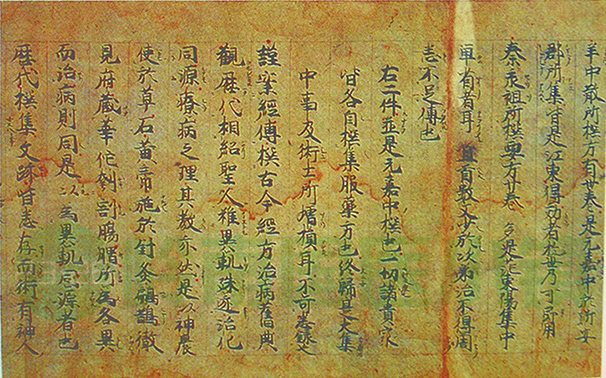 羊中散所撰方有卅卷是元嘉中於新安
郡所集皆是江東得効者於世乃可即用
秦承祖所撰要方廿卷 多是江東陽集中
單有者耳 並首数又少於次第治不得周
悉不足傳也
右二件並是元嘉中撰也一切諸貴家
皆各自撰集服藥方也終歸是大集
中事及術士所增損耳不可悉錄也
謹案經傳撰古今經方治病舊典
觀歷代相紹聖人雖異軌殊迹治化
同源療病之理其教亦然是以神農
使於草石黃帝施於針灸扁鵲徹
見府藏華佗刳割腸胃所為各異
而治病則同是以為異軌同源者也
歷代撰集文跡皆悉存而術有神人